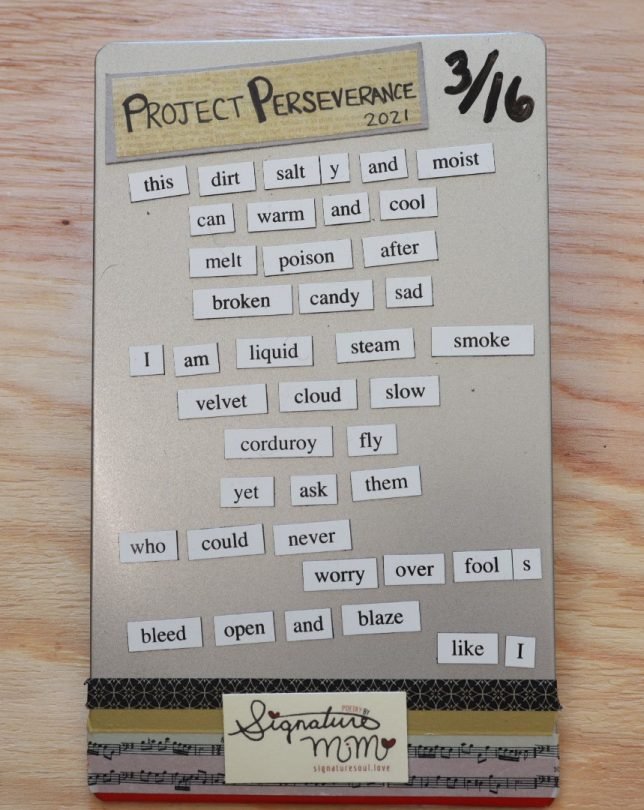 PROJECT PERSEVERANCE
2021
3/16
this dirt salt y and moist
can warm and cool
melt poison after
broken candy sad
I am liquid steam smoke
velvet cloud slow
corduroy fly
yet ask them
who could never
worry over fool s
bleed open and blaze
like I
POETRY BY
Signature
MiMi
signaturesoul.love